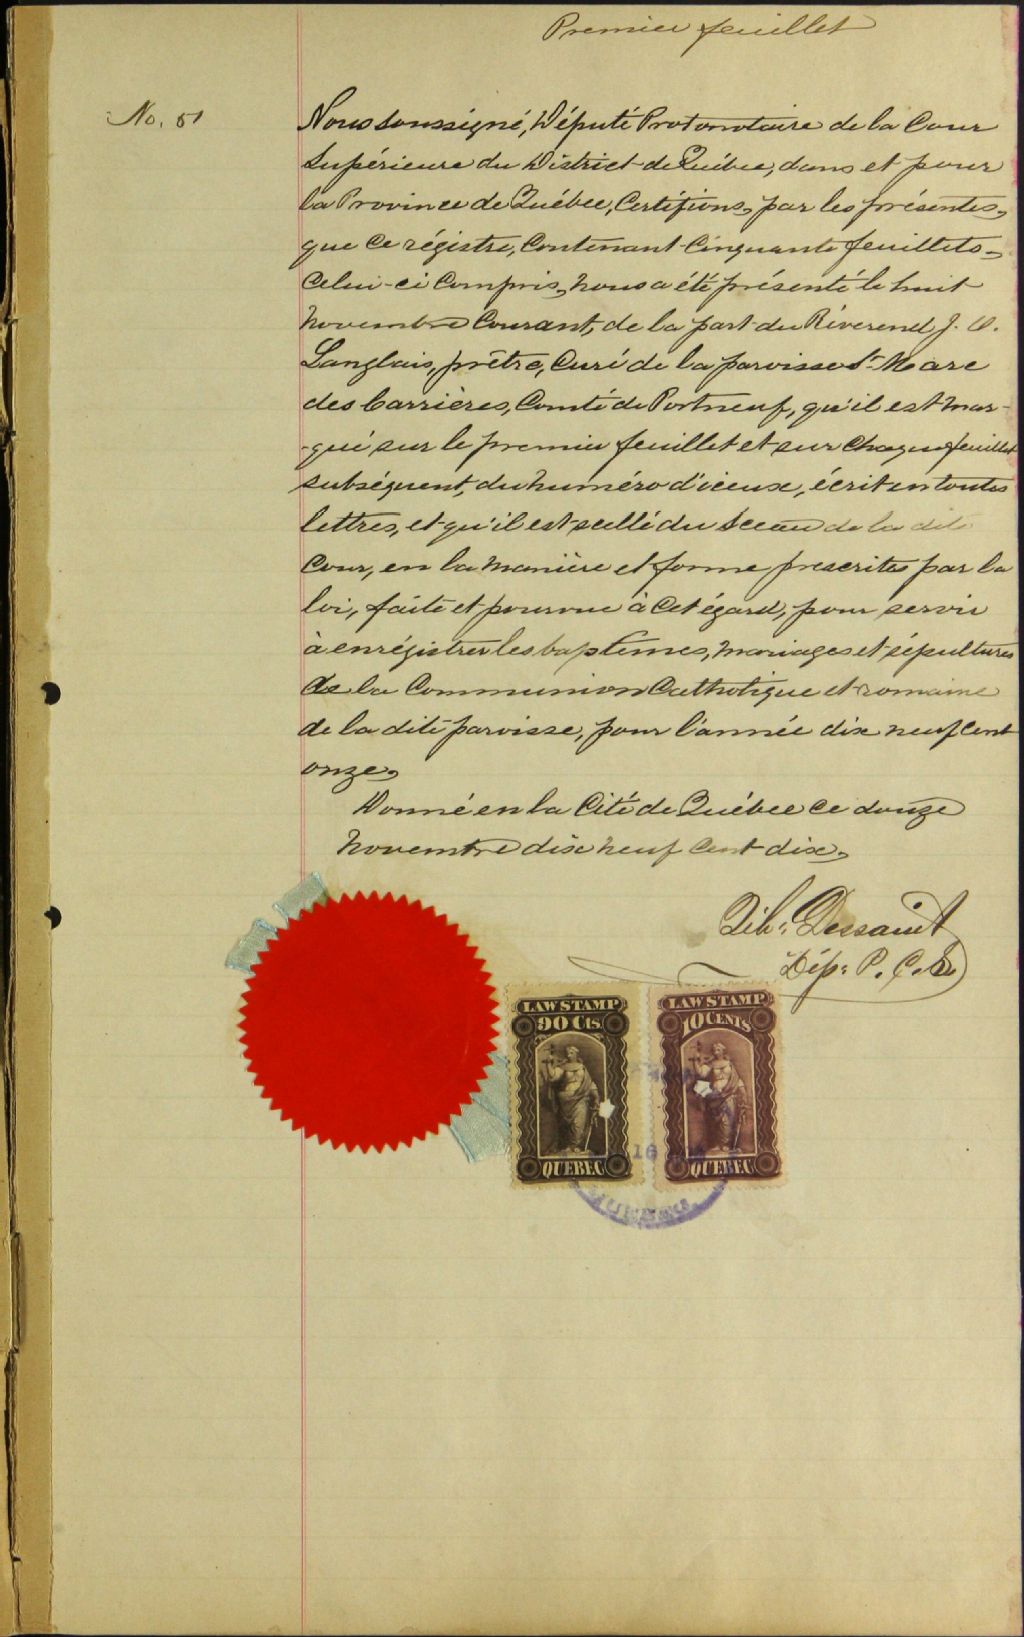 Premier feuillet
No. 51
Nous soussigné, Député Protonotaire de la Cour
Supérieure du District de Québec, dans et pour
la Province de Québec, Certifions, par les présentes,
que ce régistre, Contenant Cinquante feuillets
Celui-ci Compris, nous a été présenté le huit
Novembre Courant, de la part du Réverend J. O.
Langlais, prêtre, Curé de la paroisse St Marc
des Carrières, Comté de Portneuf, qu'il est mar-
-qué sur le premier feuillet et sur chaque feuillet
subséquent, du numéro d'iceux, écrit en toutes
lettres, et qu'il est scellé du Sceau de la dite
Cour, en la manière et forme prescrites par la
loi, faite et pourvue à cet égard, pour servir
à enrégistrer les baptêmes, mariages et sépultures
de la Communion Catholique et romaine
de la dite paroisse, pour l'année dix neuf cent
onze,
Donné en la Cité de Québec ce douze
Novembre dix neuf cent dix,
Dessaint
Dép: P. C. S.
LAW STAMP
90 Cts.
QUEBEC
LAW STAMP
10 CENTS
QUEBEC
16